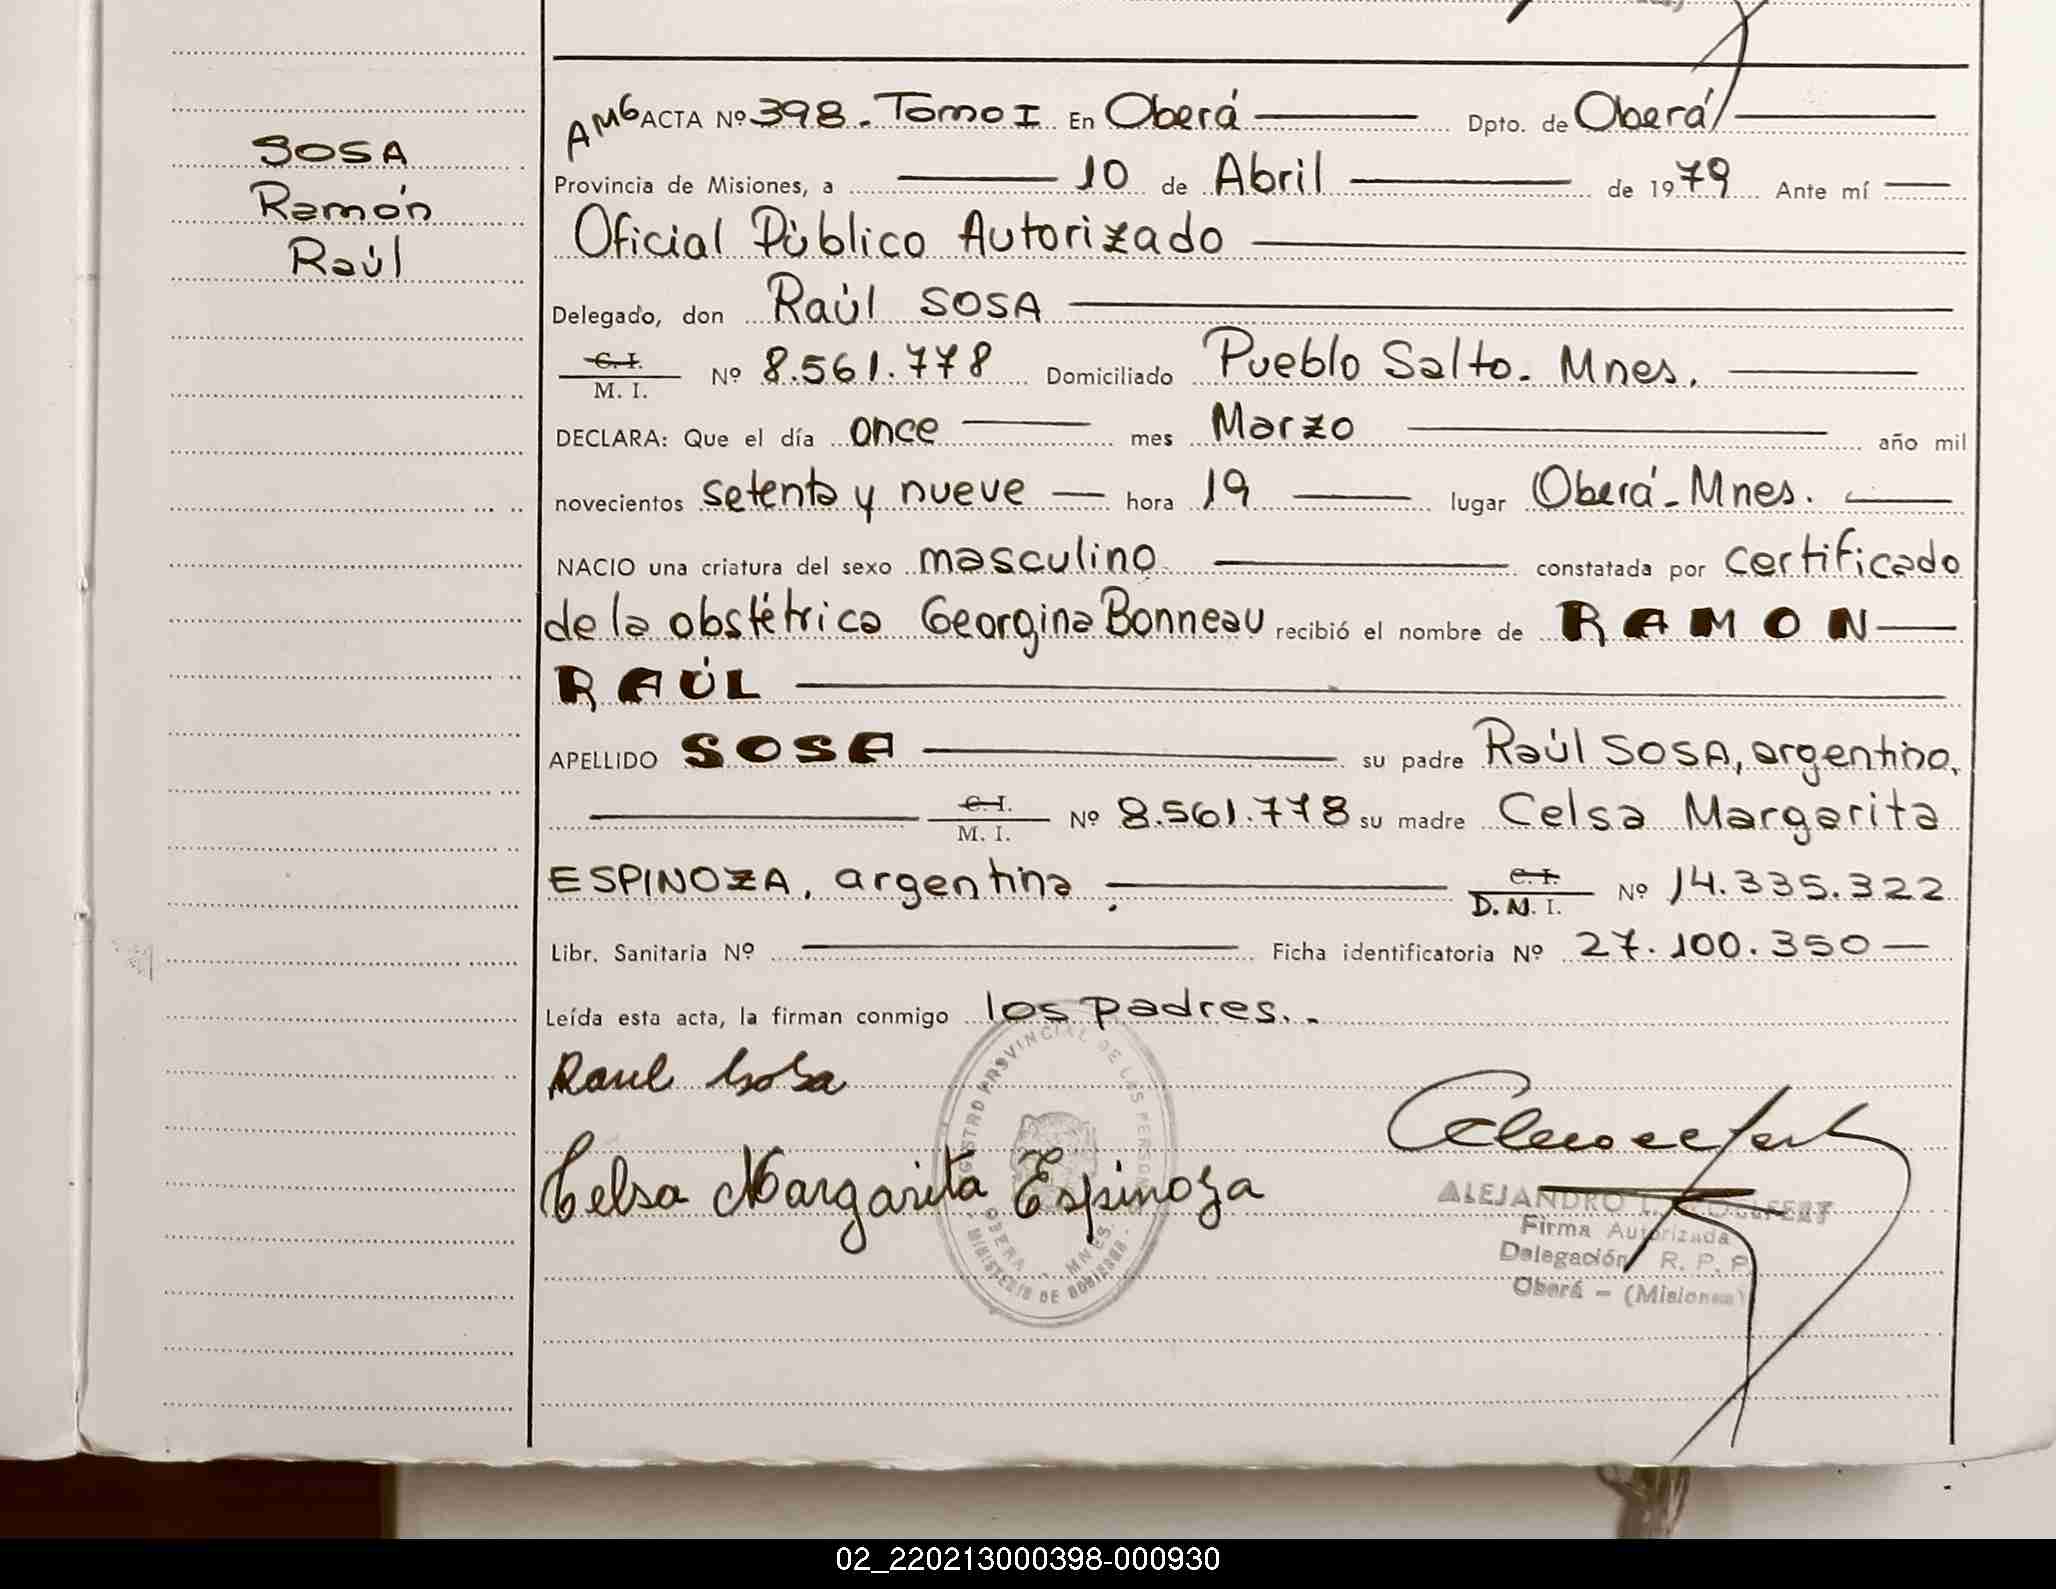 SOSA
Ramón
Raúl
AMG ACTA Nº 398. Tomo I En Oberá Dpto. de Oberá
Provincia de Misiones, a 10 de Abril de 1979 Ante mí
Oficial Público Autorizado
Delegado, don Raúl SOSA
C. I.
M. I. Nº 8.561.778 Domiciliado Pueblo Salto. Mnes.
DECLARA: Que el día once mes Marzo año mil
novecientos setenta y nueve hora 19 lugar Oberá - Mnes.
NACIO una criatura del sexo masculino constatada por certificado
de la obstétrica Georgina Bonneau recibió el nombre de RAMON
RAÚL
APELLIDO SOSA su padre Raúl SOSA, argentino,
C. I.
M. I. Nº 8.561.778 su madre Celsa Margarita
ESPINOZA, argentina. C. I.
D. N. I. Nº 14.335.322
Libr. Sanitaria Nº Ficha identificatoria Nº 27.100.350
Leída esta acta, la firman conmigo los padres. -
Raul Sosa
Celsa Margarita Espinoza
REGISTRO PROVINCIAL DE LAS PERSONAS
OBERA - MNES.
MINISTERIO DE GOBIERNO
ALEJANDRO
Firma Autorizada
Delegación R. P. P.
Oberá - (Misiones)
02_220213000398-000930